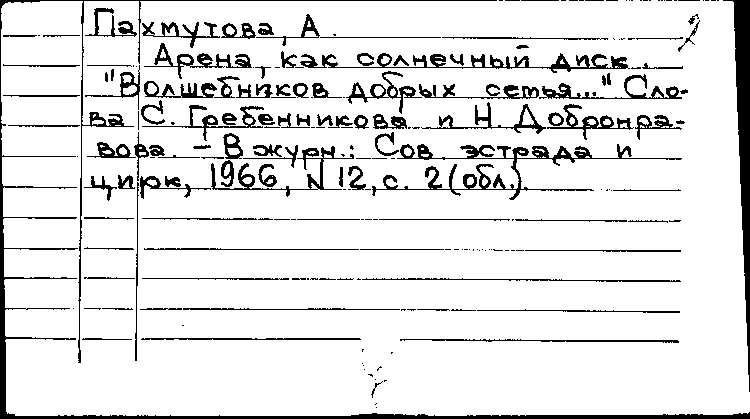 Пахмутова, А.
Арена, как солнечный диск.
"Волшебников добрых семья..." Сло-
ва С. Гребенникова и Н. Добронра-
вова. – В журн.: Сов. эстрада и
цирк, 1966, N 12, с. 2 (обл.).